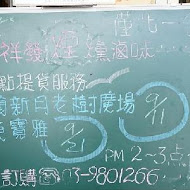 僅此一
祥發煙燻滷味
點提貨服務
蘭新月老樹廣場 9/11
寶雅 9/21
PM 2~3点
訂購 03-9801266